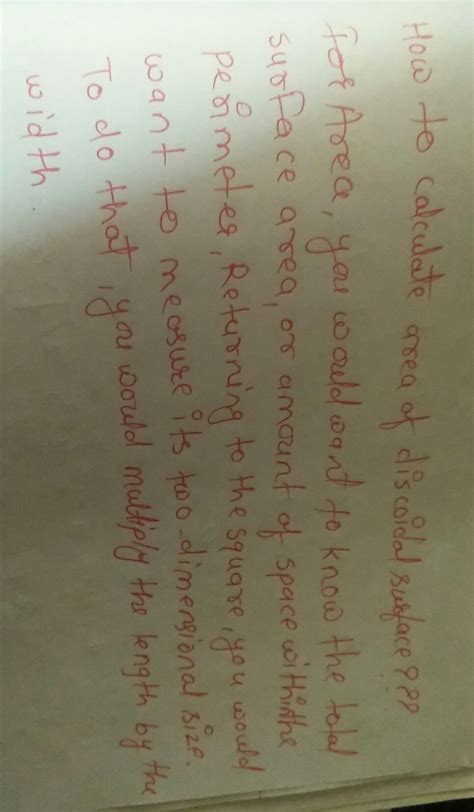 How to calculate area of discoidal surface???
For Area, you would want to know the total
surface area, or amount of space within the
perimeter, Returning to the square, you would
want to measure its two-dimensional size.
To do that, you would multiply the length by the
width.